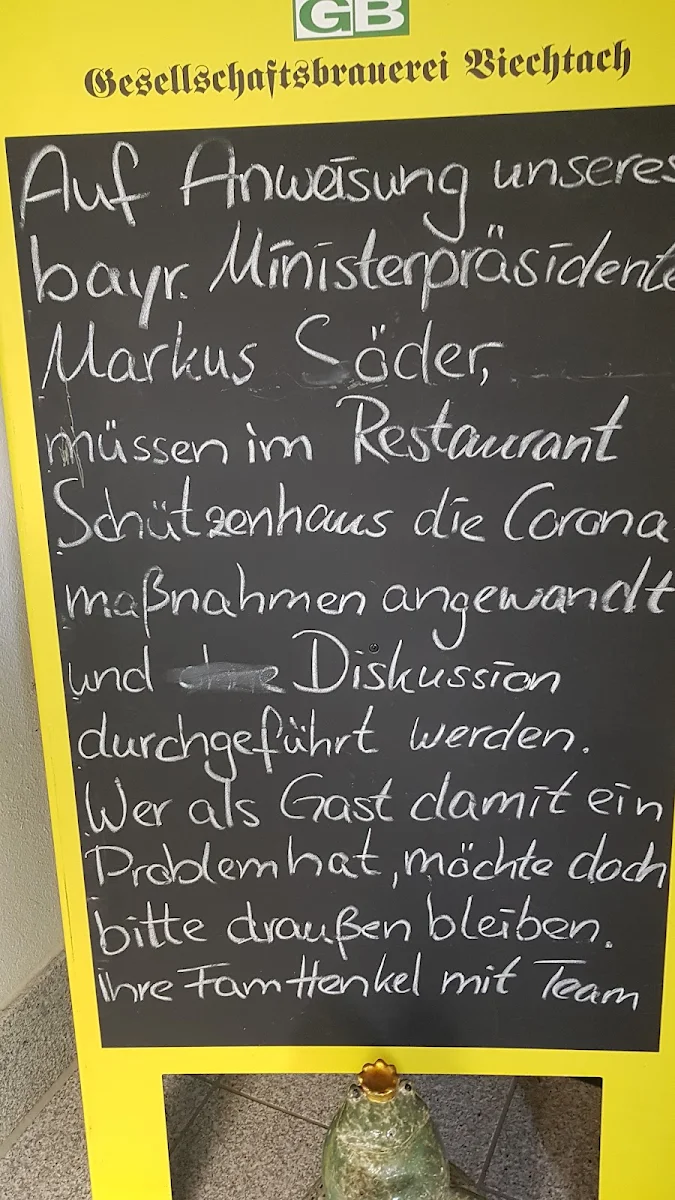 GB
Gesellschaftsbrauerei Viechtach
Auf Anweisung unseres
bayr. Ministerpräsidente
Markus Söder,
müssen im Restaurant
Schützenhaus die Corona
maßnahmen angewandt
und Diskussion
durchgeführt werden.
Wer als Gast damit ein
Problem hat, möchte doch
bitte draußen bleiben.
Ihre Fam Henkel mit Team